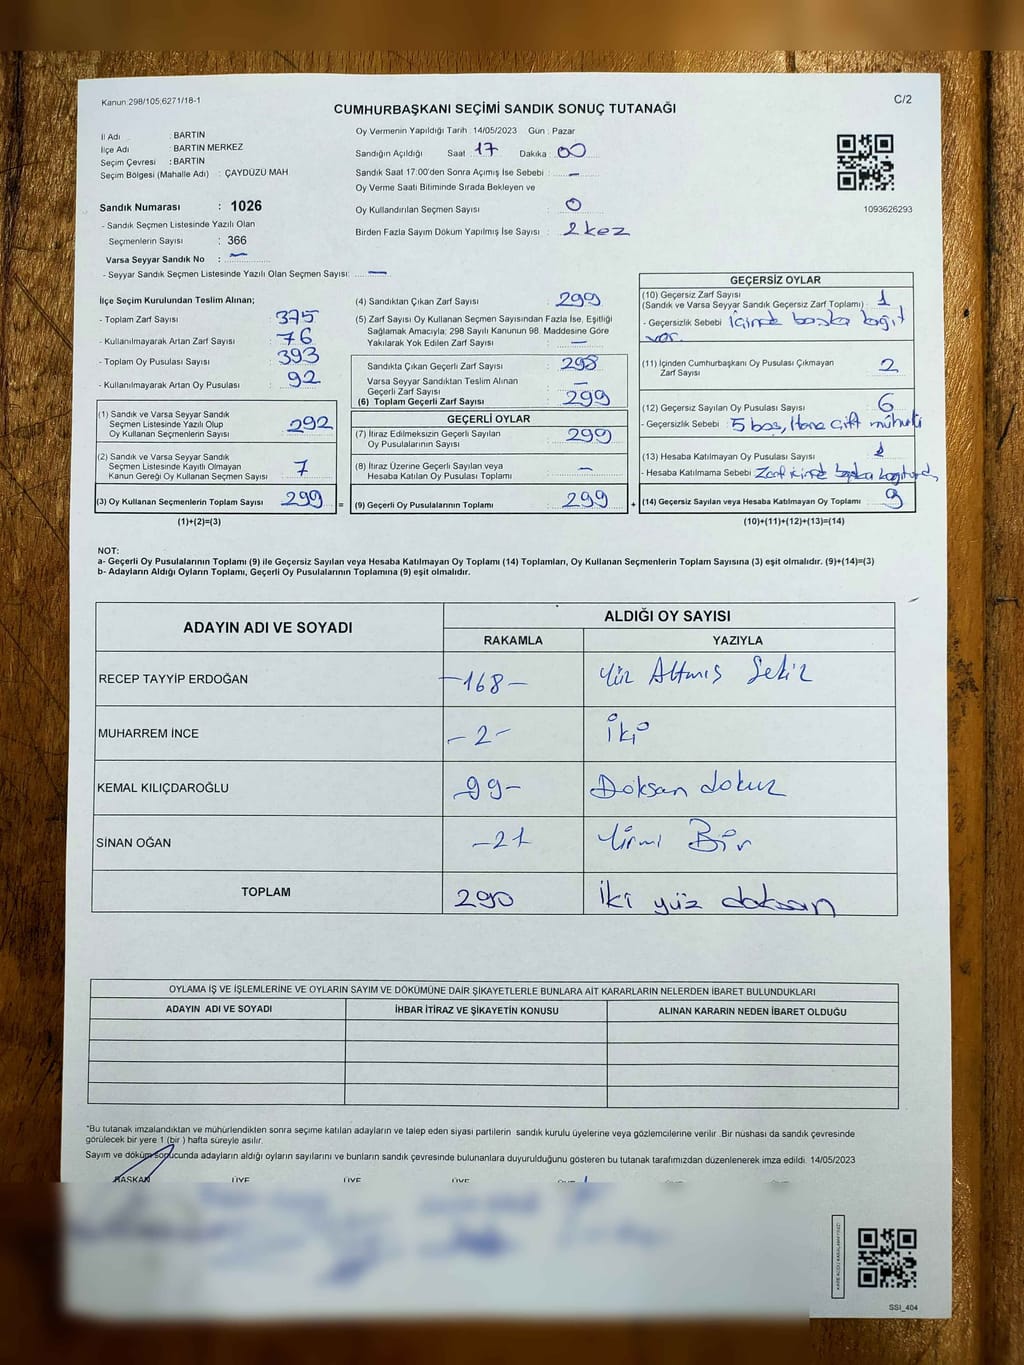 Kanun:298/105;6271/18-1
C/2
CUMHURBAŞKANI SEÇİMİ SANDIK SONUÇ TUTANAĞI
İl Adı : BARTIN
İlçe Adı : BARTIN MERKEZ
Seçim Çevresi : BARTIN
Seçim Bölgesi (Mahalle Adı) : ÇAYDÜZÜ MAH
Sandık Numarası : 1026
- Sandık Seçmen Listesinde Yazılı Olan
Seçmenlerin Sayısı : 366
Varsa Seyyar Sandık No : —
- Seyyar Sandık Seçmen Listesinde Yazılı Olan Seçmen Sayısı: —
Oy Vermenin Yapıldığı Tarih : 14/05/2023 Gün : Pazar
Sandığın Açıldığı Saat : 17 Dakika : 00
Sandık Saat 17:00'den Sonra Açımış İse Sebebi : —
Oy Verme Saati Bitiminde Sırada Bekleyen ve
Oy Kullandırılan Seçmen Sayısı : 0
Birden Fazla Sayım Döküm Yapılmış İse Sayısı : 2 kez
1093626293
İlçe Seçim Kurulundan Teslim Alınan;
- Toplam Zarf Sayısı : 375
- Kullanılmayarak Artan Zarf Sayısı : 76
- Toplam Oy Pusulası Sayısı : 393
- Kullanılmayarak Artan Oy Pusulası : 92
(1) Sandık ve Varsa Seyyar Sandık
Seçmen Listesinde Yazılı Olup
Oy Kullanan Seçmenlerin Sayısı : 292
(2) Sandık ve Varsa Seyyar Sandık
Seçmen Listesinde Kayıtlı Olmayan
Kanun Gereği Oy Kullanan Seçmen Sayısı : 7
(3) Oy Kullanan Seçmenlerin Toplam Sayısı : 299 =
(1)+(2)=(3)
(4) Sandıktan Çıkan Zarf Sayısı : 299
(5) Zarf Sayısı Oy Kullanan Seçmen Sayısından Fazla İse, Eşitliği
Sağlamak Amacıyla; 298 Sayılı Kanunun 98. Maddesine Göre
Yakılarak Yok Edilen Zarf Sayısı : —
Sandıkta Çıkan Geçerli Zarf Sayısı : 298
Varsa Seyyar Sandıktan Teslim Alınan
Geçerli Zarf Sayısı : —
(6) Toplam Geçerli Zarf Sayısı : 299
GEÇERLİ OYLAR
(7) İtiraz Edilmeksizin Geçerli Sayılan
Oy Pusulalarının Sayısı : 299
(8) İtiraz Üzerine Geçerli Sayılan veya
Hesaba Katılan Oy Pusulası Toplamı : —
(9) Geçerli Oy Pusulalarının Toplamı : 299 +
GEÇERSİZ OYLAR
(10) Geçersiz Zarf Sayısı
(Sandık ve Varsa Seyyar Sandık Geçersiz Zarf Toplamı) : 1
- Geçersizlik Sebebi : İçinde başka kağıt
var.
(11) İçinden Cumhurbaşkanı Oy Pusulası Çıkmayan
Zarf Sayısı : 2
(12) Geçersiz Sayılan Oy Pusulası Sayısı : 6
- Geçersizlik Sebebi : 5 boş, çift mühürlü
(13) Hesaba Katılmayan Oy Pusulası Sayısı :
- Hesaba Katılmama Sebebi : Zarf içinde başka
(14) Geçersiz Sayılan veya Hesaba Katılmayan Oy Toplamı : 9
(10)+(11)+(12)+(13)=(14)
NOT:
a- Geçerli Oy Pusulalarının Toplamı (9) ile Geçersiz Sayılan veya Hesaba Katılmayan Oy Toplamı (14) Toplamları, Oy Kullanan Seçmenlerin Toplam Sayısına (3) eşit olmalıdır. (9)+(14)=(3)
b- Adayların Aldığı Oyların Toplamı, Geçerli Oy Pusulalarının Toplamına (9) eşit olmalıdır.
ADAYIN ADI VE SOYADI ALDIĞI OY SAYISI
RAKAMLA YAZIYLA
RECEP TAYYİP ERDOĞAN -168- Yüz Altmış Sekiz
MUHARREM İNCE -2- İki
KEMAL KILIÇDAROĞLU 99- Doksan dokuz
SİNAN OĞAN -21 Yirmi Bir
TOPLAM 290 İki yüz doksan
OYLAMA İŞ VE İŞLEMLERİNE VE OYLARIN SAYIM VE DÖKÜMÜNE DAİR ŞİKAYETLERLE BUNLARA AİT KARARLARIN NELERDEN İBARET BULUNDUKLARI
ADAYIN ADI VE SOYADI İHBAR İTİRAZ VE ŞİKAYETİN KONUSU ALINAN KARARIN NEDEN İBARET OLDUĞU
*Bu tutanak imzalandıktan ve mühürlendikten sonra seçime katılan adayların ve talep eden siyasi partilerin sandık kurulu üyelerine veya gözlemcilerine verilir .Bir nüshası da sandık çevresinde
görülecek bir yere 1 (bir ) hafta süreyle asılır.
Sayım ve döküm sonucunda adayların aldığı oyların sayılarını ve bunların sandık çevresinde bulunanlara duyurulduğunu gösteren bu tutanak tarafımızdan düzenlenerek imza edildi. 14/05/2023
BAŞKAN ÜYE ÜYE ÜYE
SSI_404